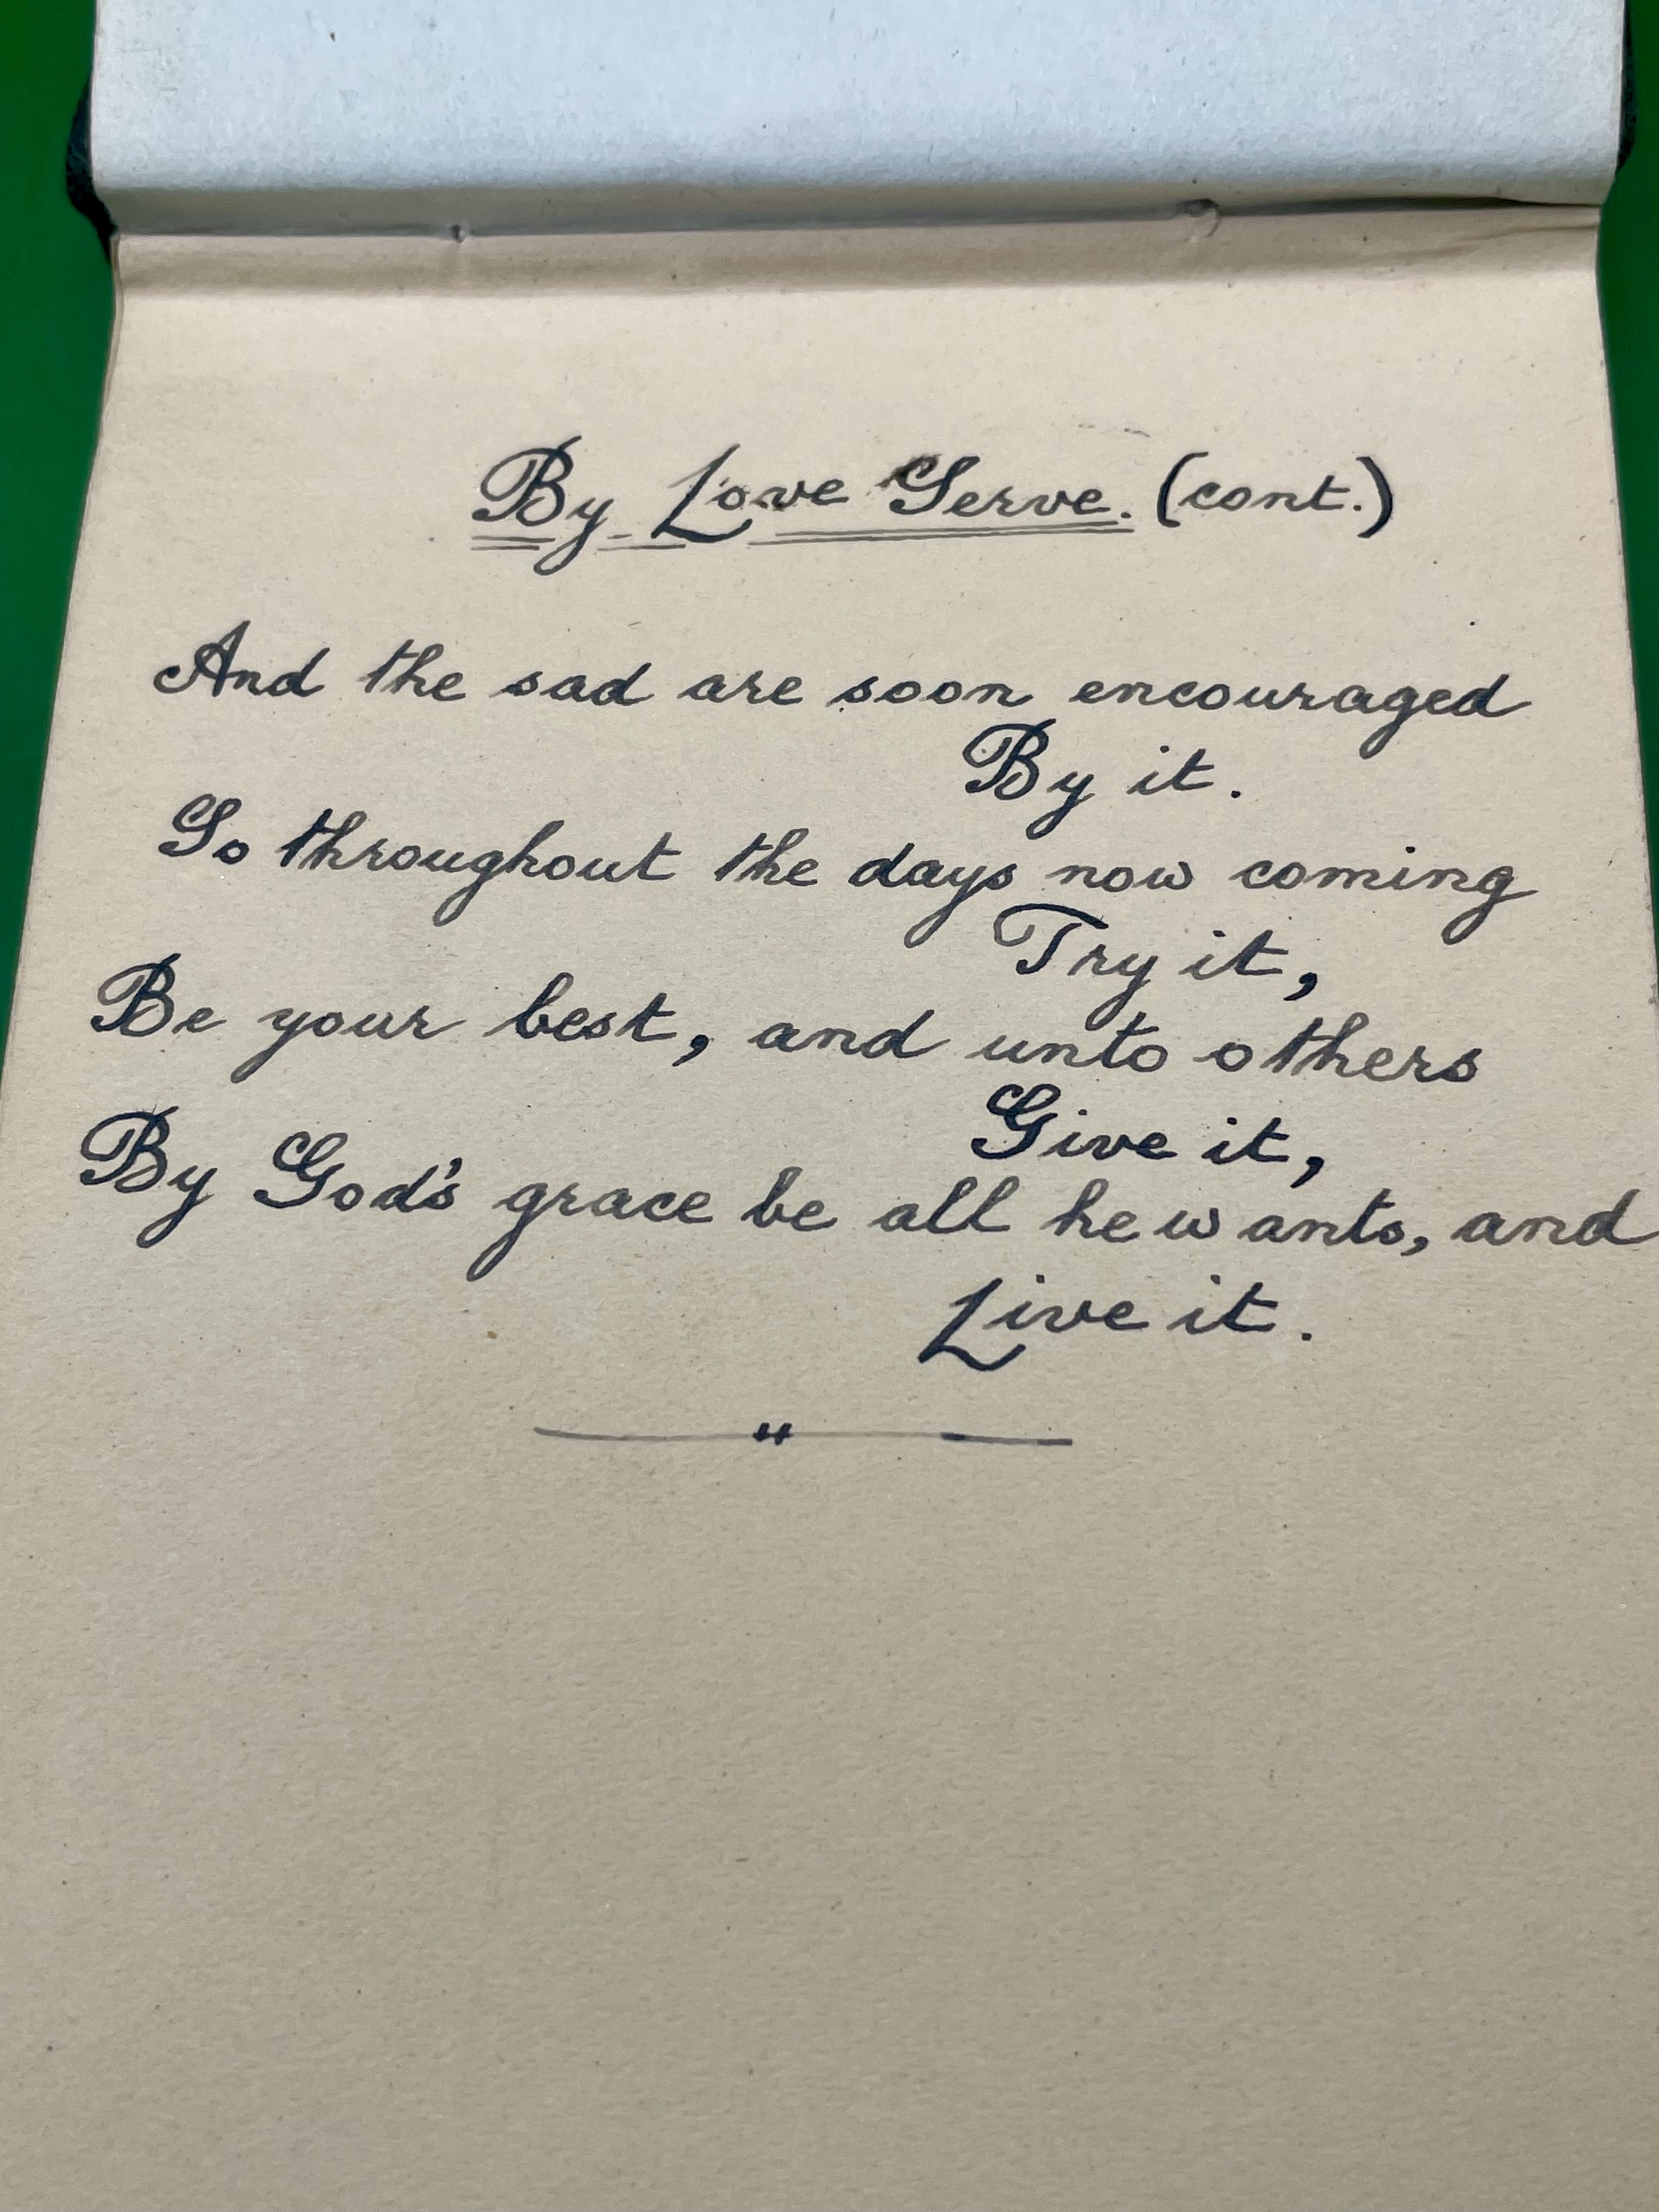 By Love Serve. (cont.)
And the sad are soon encouraged
By it.
So throughout the days now coming
Try it,
Be your best, and unto others
Give it,
By God's grace be all he wants, and
Live it.